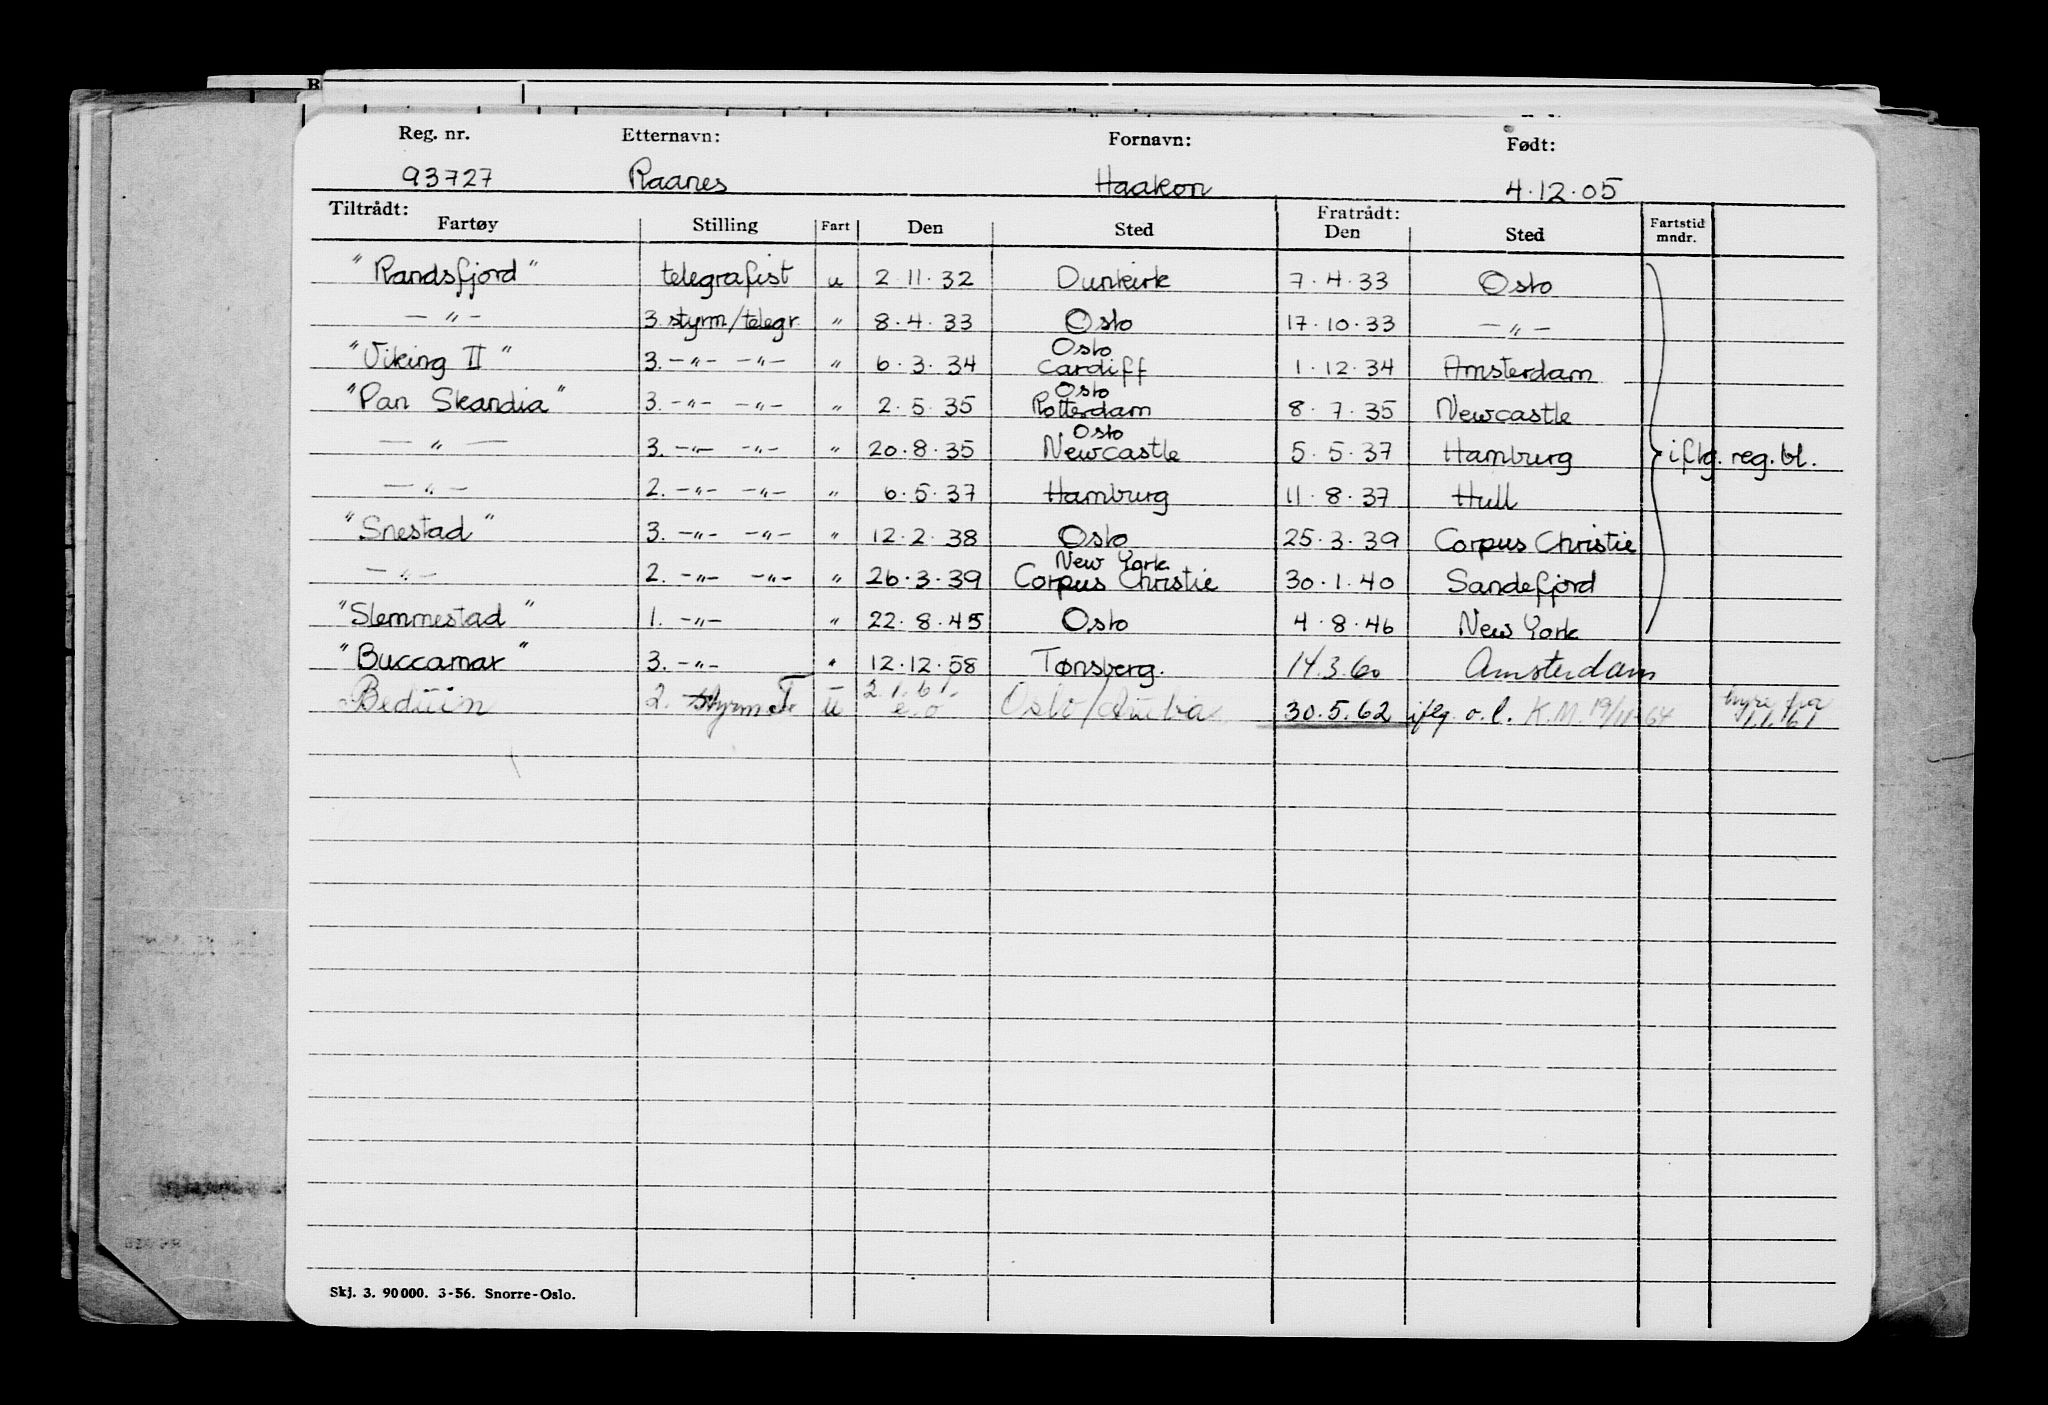 Reg. nr. Etternavn: Fornavn: Født:
93727 Raanes Haakon 4.12.05
Tiltrådt: Fratrådt:
Fartøy Stilling Fart Den Sted Den Sted Fartstid mndr.
"Randsfjord" telegrafist u 2.11.32 Dunkirk 7.4.33 Oslo
—"— 3. styrm/telegr. " 8.4.33 Oslo 17.10.33 —"—
Oslo
"Viking II" 3. —"— —"— " 6.3.34 Cardiff 1.12.34 Amsterdam
Oslo
"Pan Skandia" 3. —"— —"— " 2.5.35 Rotterdam 8.7.35 Newcastle
Oslo
—"— 3. —"— —"— " 20.8.35 Newcastle 5.5.37 Hamburg iflg. reg. bl.
—"— 2. —"— —"— " 6.5.37 Hamburg 11.8.37 Hull
"Snestad" 3. —"— —"— " 12.2.38 Oslo 25.3.39 Corpus Christie
New York
—"— 2. —"— —"— " 26.3.39 Corpus Christie 30.1.40 Sandefjord
"Slemmestad" 1. —"— " 22.8.45 Oslo 4.8.46 New York
"Buccamar" 3. —"— " 12.12.58 Tønsberg. 14.3.60 Amsterdam
Beduin 2. styrm u 2.1.61. Oslo/ 30.5.62 iflg. o.l. K.M. 19/11-64 hyre fra 1.1.61
Skj. 3. 90000. 3-56. Snorre-Oslo.